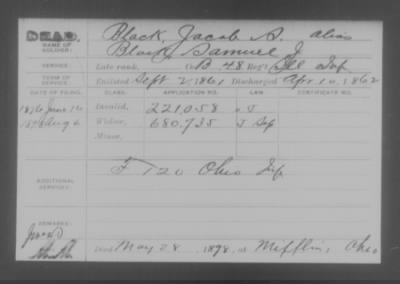 DEAD.
NAME OF SOLDIER: Black, Jacob S. alias
Black, Samuel J.
SERVICE: Late rank, Co. B, 48 Reg't Ill Inf
TERM OF SERVICE: Enlisted Sept 2, 1861, Discharged Apr 10, 1862
DATE OF FILING. CLASS. APPLICATION NO. LAW. CERTIFICATE NO.
1876 June Invalid, 221058
1898 Aug 6 Widow, 680.735
Minor,
ADDITIONAL SERVICES: F 120 Ohio Inf
REMARKS:
Died May 28 1898, at Mifflin, Ohio